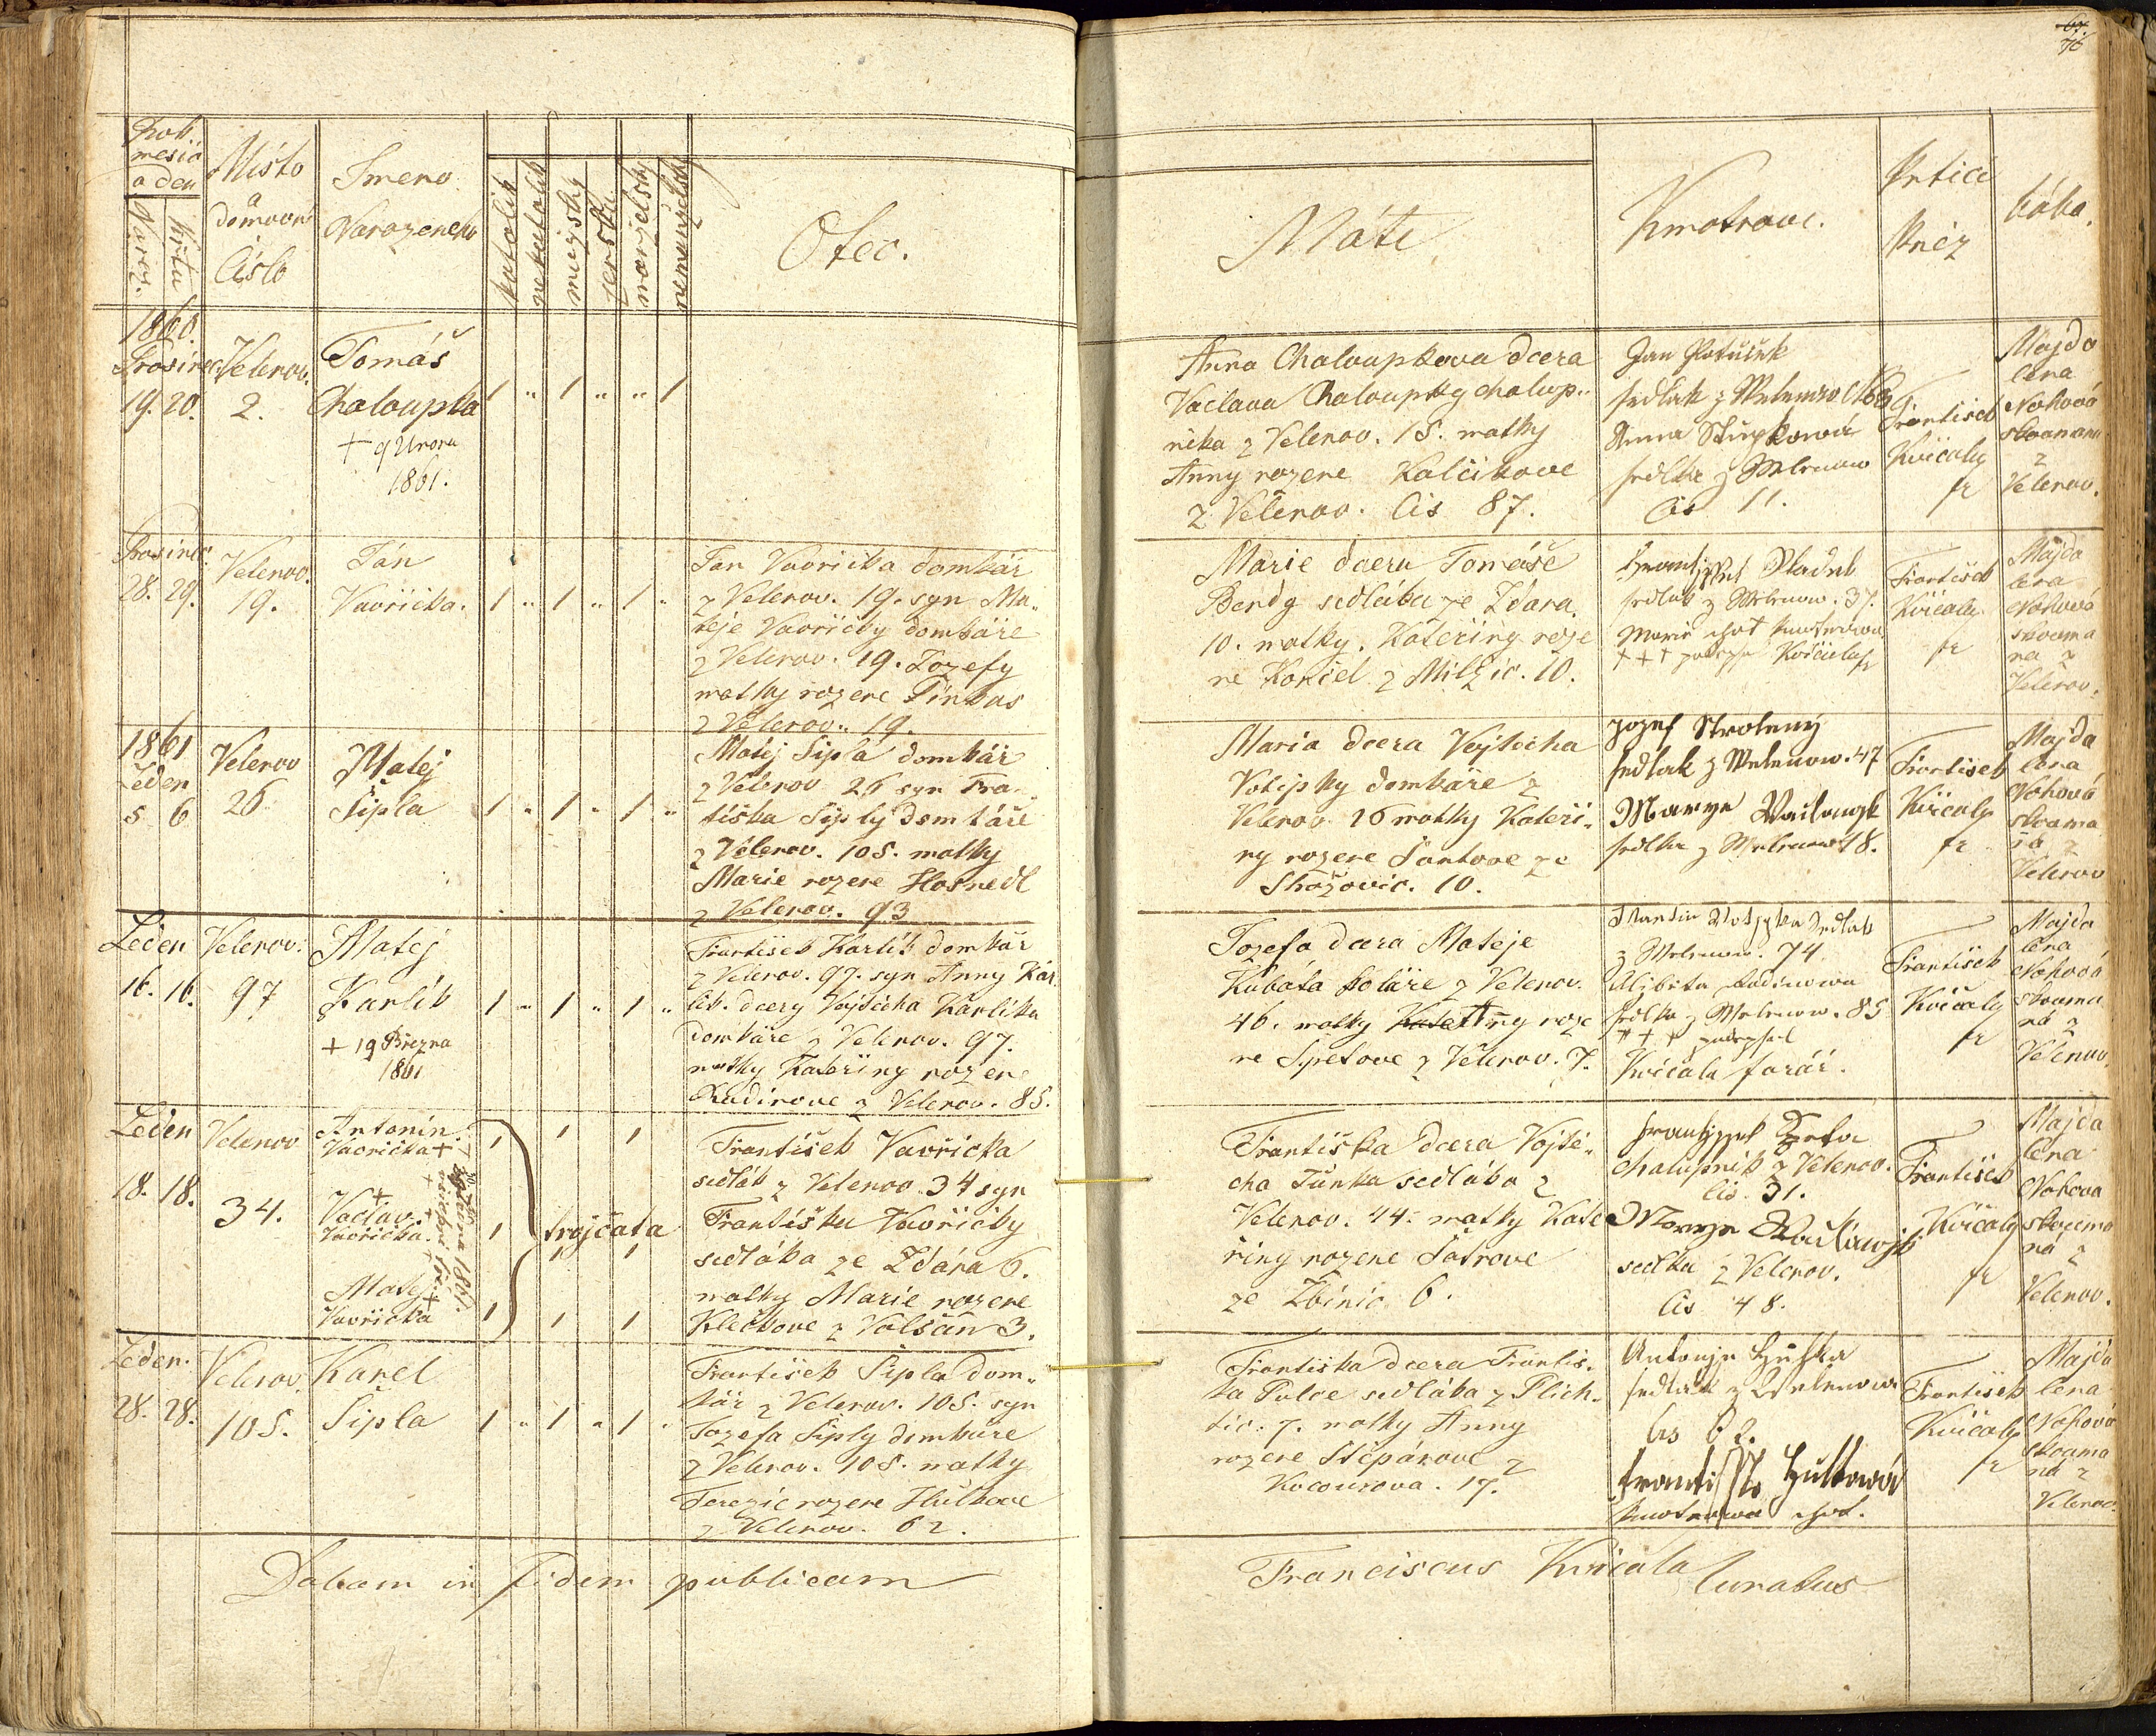 67.
76
Rok
mesic
a den
Naroz.
křtu
Místo
a
domovni
Číslo
Jmeno
Narozeneho
katolik
nekatolik
mužský
ženska
manželsky
nemanželsky
Otec.
Máti
Kmotrove.
Křtici
Kněz
bába.
1860.
Prosinec
19. 20.
Velenov.
2.
Tomáš
Chaloupka
+ 9 Unora
1861.
1 " 1 " " 1
Anna Chaloupkova dcera
Vaclava Chaloupky chalup„
nika z Velenov. 15. matky
Anny rozene Kalčikove
z Velenov. Čis 87.
Jan
sedlak z Welenow
Anna
sedlka z Welenow
Čis 11.
František
Kvičaly
fr
Majda
lena
Nohová
skouman
z
Velenov.
Prosinec
28. 29.
Velenov.
19.
Ján
Vavřička.
1 " 1 " 1 "
Jan Vavřička domkár
z Velenov. 19. syn Ma„
teje Vavřičky domkáře
z Velenov. 19. Jozefy
matky rozene Pinkas
z Velenov. 19.
Marie dcera Tomáše
Bendy sedláka ze Ždara.
10. matky. Kateřiny roze
ne Konšel z Milžic. 10.
sedlak z Welenow. 37.
Marie chot kmotrowa
+ + +
František
Kvičaly
fr
Majda
lena
Nohová
skouma
na z
Velenov.
1861
Leden
5 6
Velenov
26
Matej
Šipla
1 " 1 " 1 "
Matěj Šipla domkář
z Velenov 26 syn Fran„
tiška Šiply domkáře
z Velenov. 105. matky
Marie rozene Hosnedl
z Velenov. 93
Maria dcera Vojtecha
Votipky domkáře z
Velenov 16 matky Kateři„
ny rozene Šantove ze
Sražovic. 10.
Jozef
sedlak z Welenow. 47
Marye
sedlka z Welenow 48.
František
Kvičaly
fr
Majda
lena
Nohová
skouma
na z
Velenov
Leden
16. 16.
Velenov.
97
Matej
Karlik
+ 19 Března
1861
1 " 1 " 1 "
František Karlik domkár
z Velenov. 97. syn Anny Kar
lik. dcery Vojtěcha Karlika
domkáře z Velenov. 97.
matky Kateřiny rozene
Kudirove z Velenov. 85.
Jozefa dcera Mateje
Kubáta koláře z Velenov.
46. matky Kate Anny roze
ne Spetove z Velenov. 7.
Martin Wotypka sedlak
z Welenow. 74
sedlka z Welenow. 85
+ + + podepsal
Kvičala farář.
František
Kvičaly
fr
Majda
lena
Nohová
skouma
ná z
Velenov
Leden
18. 18.
Velenov
34.
Antonin
Vavřička +
+
Vaclav.
Vavřička.
Matej +
Vavřička
1 1 1
trojčata
1 1 1
1 1 1
František Vavřička
sedlák z Velenov. 34 syn
Františka Vavřičky
sedláka ze Ždára 6.
matky Marie rozene
Klečkove z Volšan 3.
Františka dcera Vojtě„
cha Tůnka sedláka z
Velenov. 44. matky Kate
řiny rozene Šatrove
ze Zbinic 6.
chalupnik z Velenov.
čis. 31.
sedlka z Velenov.
čis 48.
František
Kvičaly
fr
Majda
lena
Nohova
skouma
ná z
Velenov.
Leden.
28. 28.
Velenov.
105.
Karel
Šipla
1 " 1 " 1 "
František Šipla dom„
kár z Velenov. 105. syn
Jozefa Šiply domkáře
z Velenov. 105. matky
Terezie rozene Hulkove
z Velenov. 62.
Františka dcera Františ„
ka Pulce sedláka z Plich„
tic. 7. matky Anny
rozene Štěpánove z
Kocourova. 17.
sedlak z Welenowa
čis 62.
Hulkowá
kmotrowa chot.
František
Kvičaly
fr
Majda
lena
Nohová
skouma
ná z
Velenov.
Datam in fidem publicam
Franciscus Kvičala Curatus